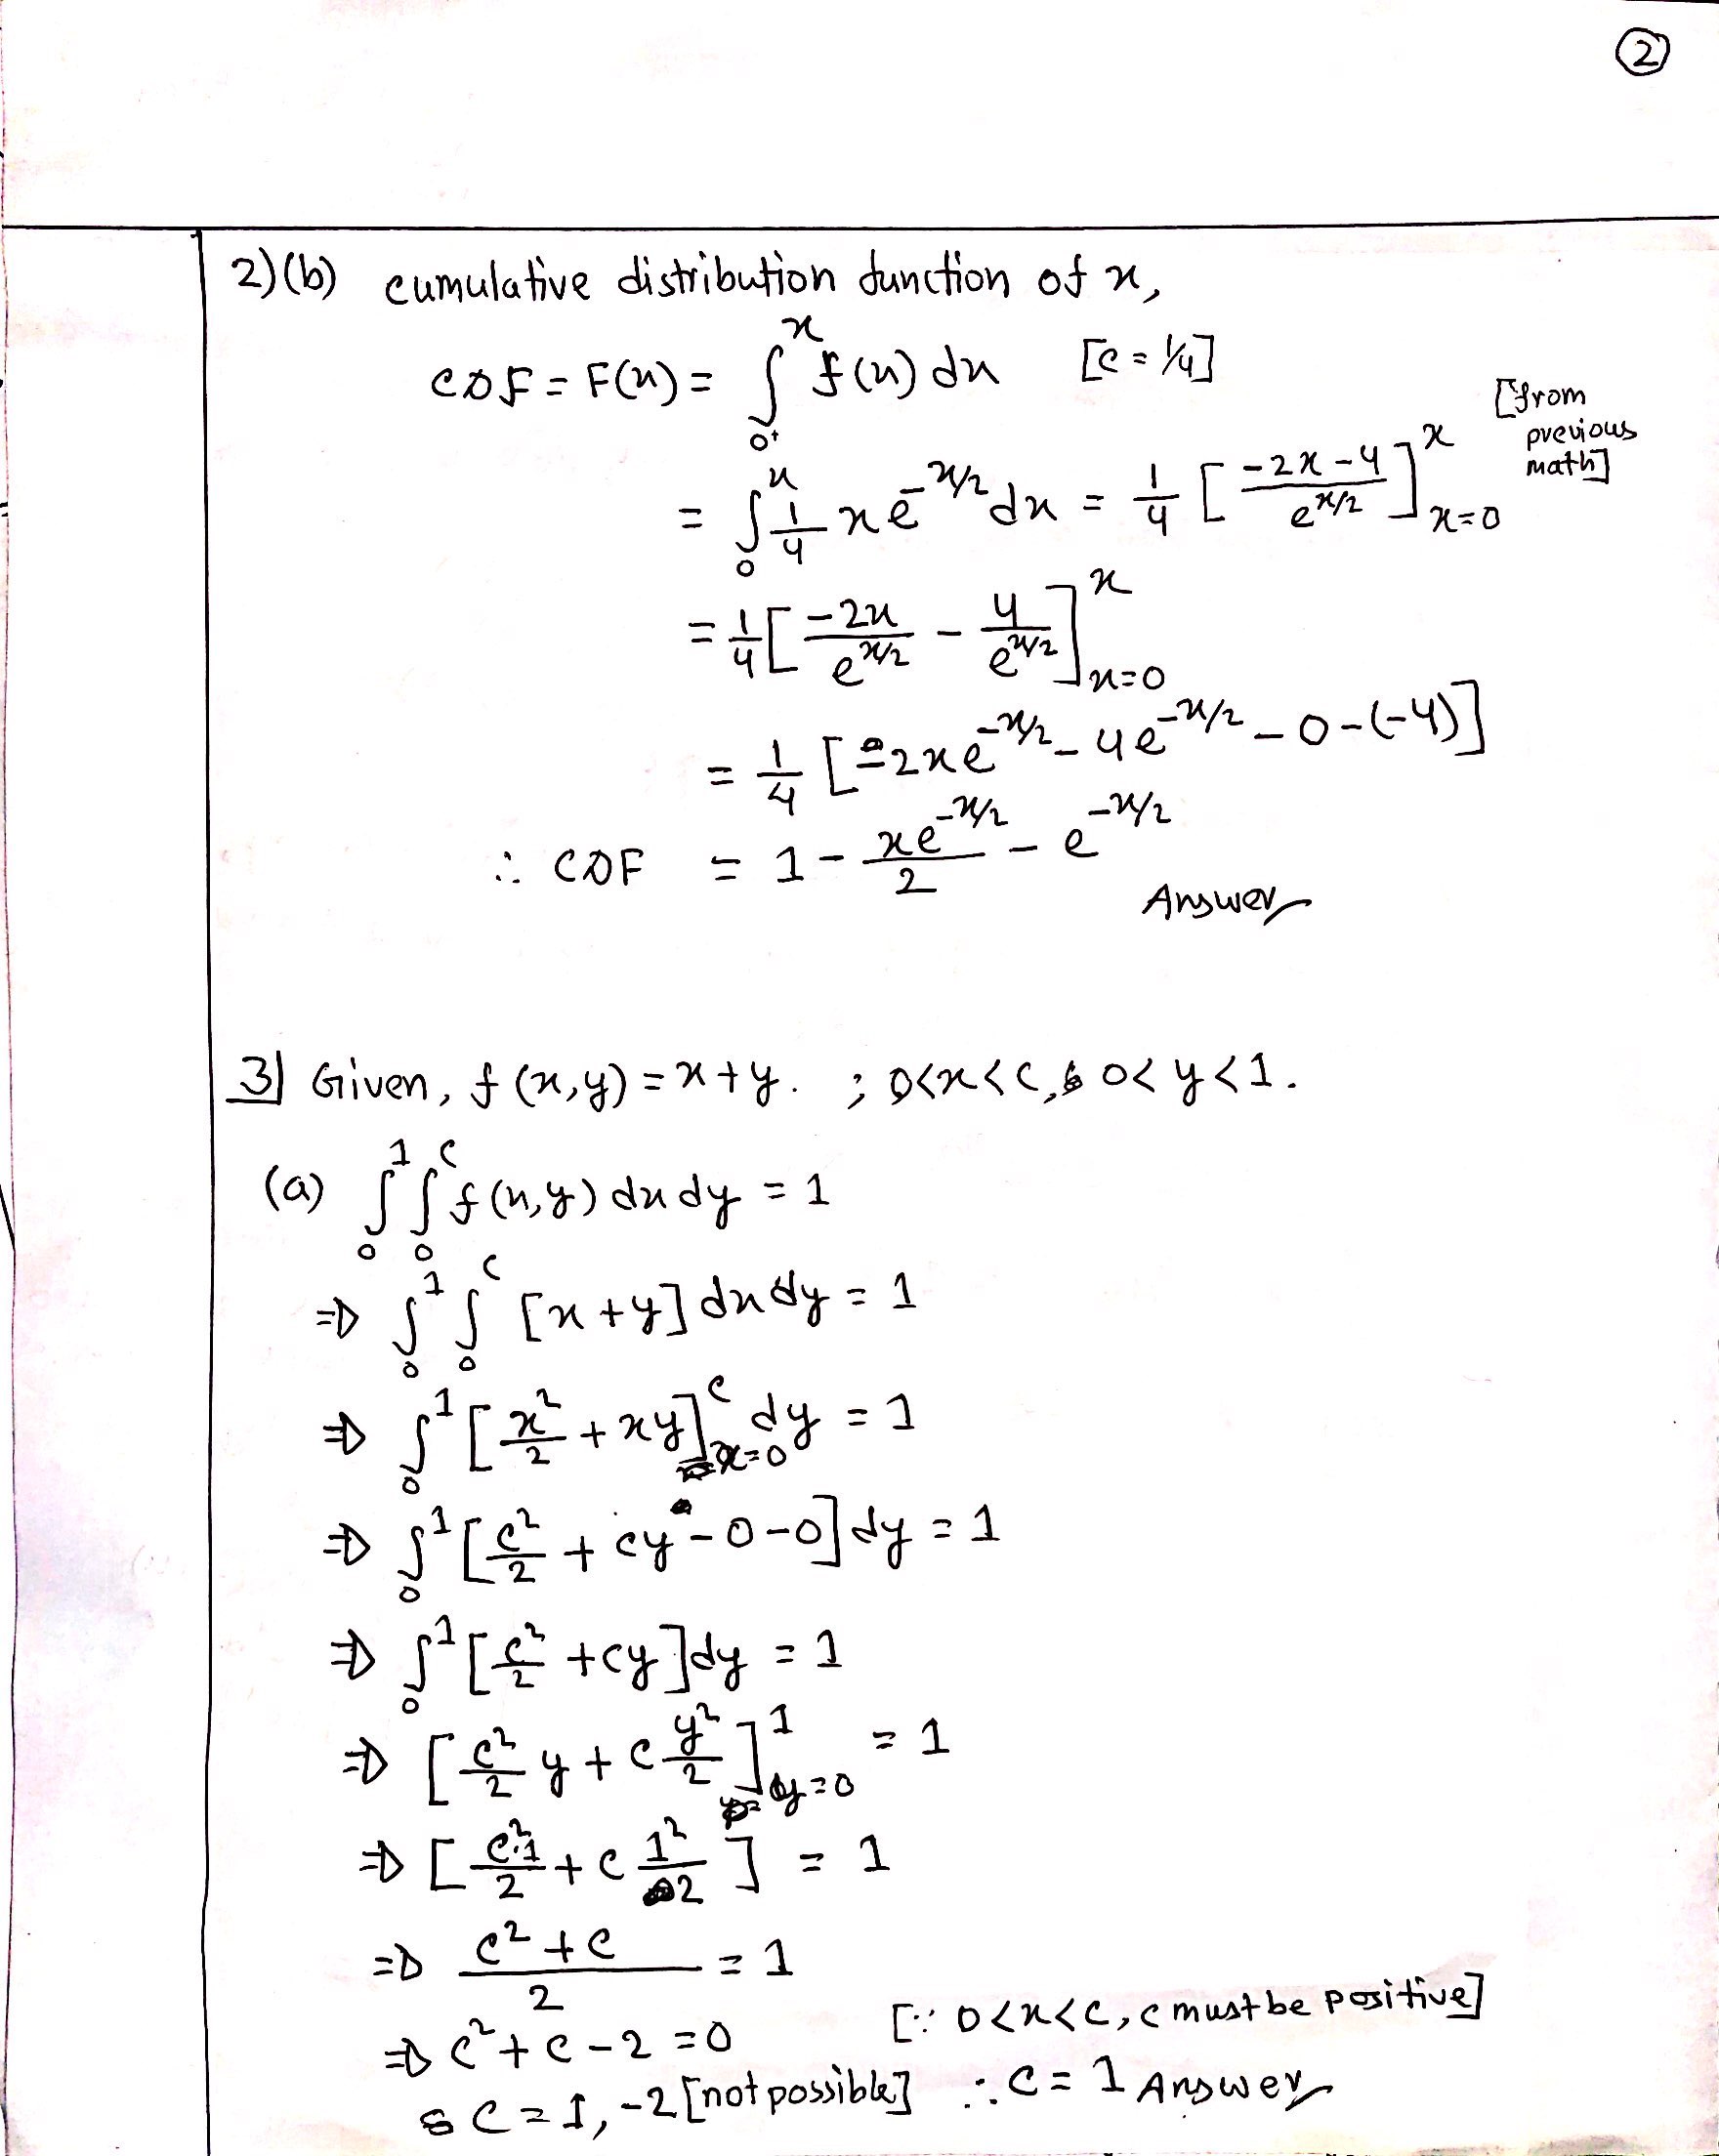 ②
2)(b) cumulative distribution function of x,
CDF = F(x) = ∫₀₊ˣ f(x) dx [c = 1/4]
= ∫₀ˣ 1/4 x e^(-x/2) dx = 1/4 [(-2x-4)/e^(x/2)]ˣ ₓ₌₀ [from previous math]
= 1/4 [-2x/e^(x/2) - 4/e^(x/2)]ˣ ₓ₌₀
= 1/4 [-2xe^(-x/2) - 4e^(-x/2) - 0 - (-4)]
∴ CDF = 1 - xe^(-x/2)/2 - e^(-x/2)
Answer
3) Given, f(x,y) = x+y. ; 0<x<c, 0<y<1.
(a) ∫₀¹ ∫₀ᶜ f(x,y) dx dy = 1
⇒ ∫₀¹ ∫₀ᶜ [x+y] dx dy = 1
⇒ ∫₀¹ [x²/2 + xy]ᶜ ₓ₌₀ dy = 1
⇒ ∫₀¹ [c²/2 + cy - 0 - 0] dy = 1
⇒ ∫₀¹ [c²/2 + cy] dy = 1
⇒ [c²/2 y + c y²/2]¹ y=0 = 1
⇒ [c².1/2 + c 1²/2] = 1
⇒ (c²+c)/2 = 1
⇒ c²+c-2 = 0 [∵ 0<x<c, c must be positive]
c = 1, -2 [not possible] ∴ c = 1 Answer